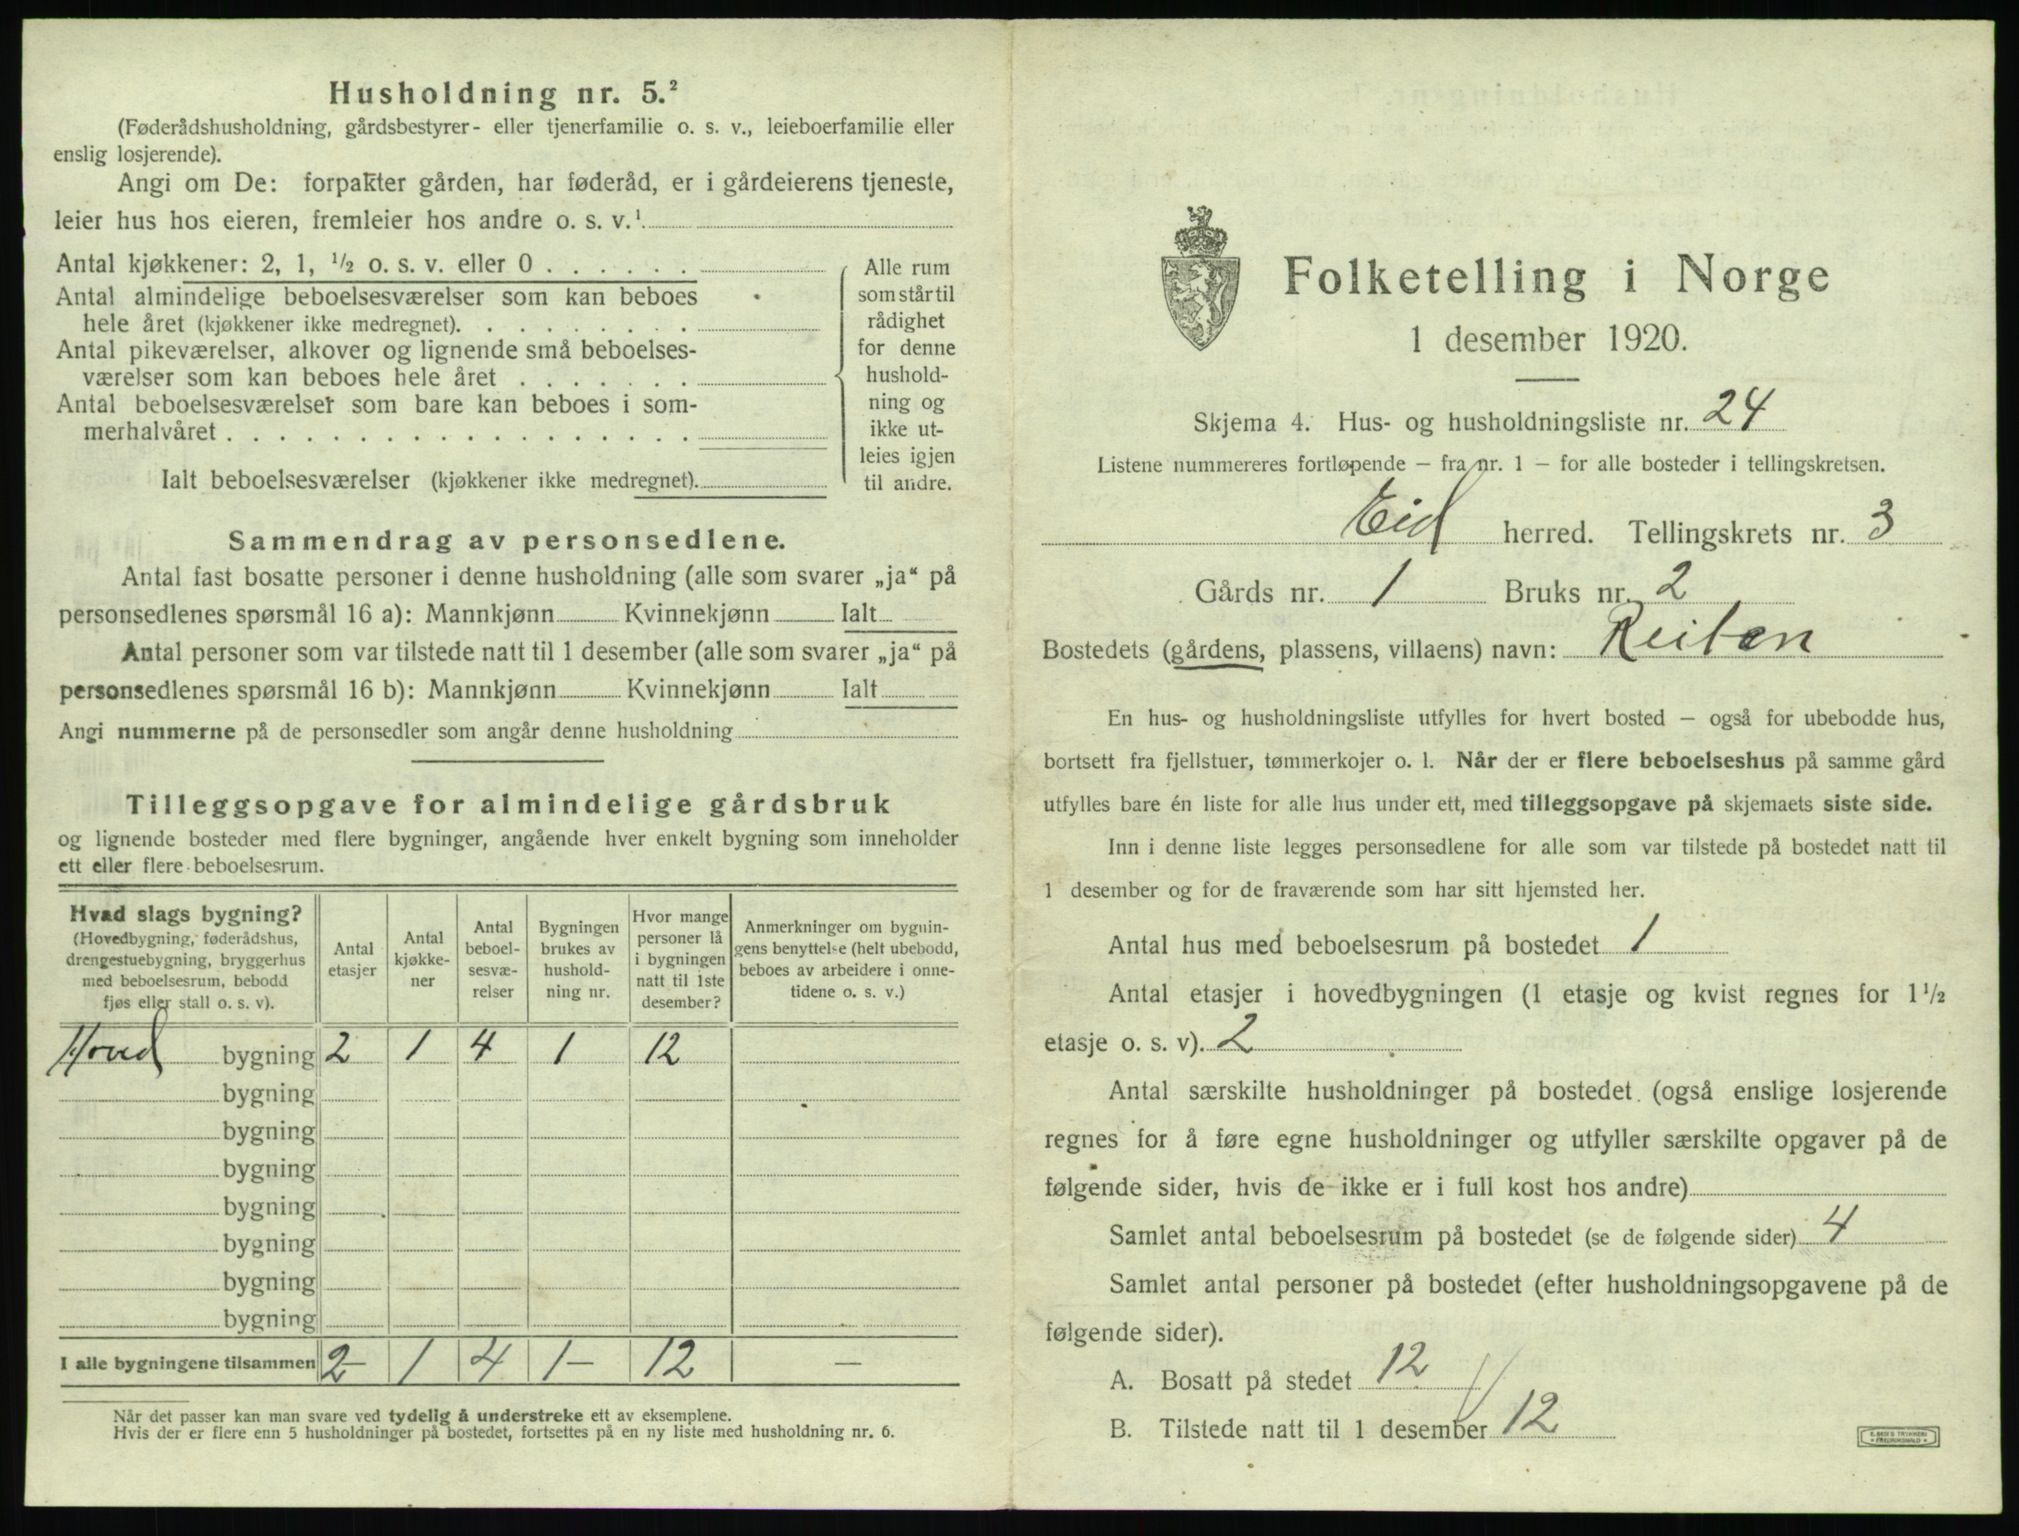 Husholdning nr. 5.²
(Føderådshusholdning, gårdsbestyrer- eller tjenerfamilie o. s. v., leieboerfamilie eller
enslig losjerende).
Angi om De: forpakter gården, har føderåd, er i gårdeierens tjeneste,
leier hus hos eieren, fremleier hos andre o. s. v.¹
Antal kjøkkener: 2, 1, ½ o. s. v. eller 0 . . . . . .
Antal almindelige beboelsesværelser som kan beboes
hele året (kjøkkener ikke medregnet). . . . . . . . .
Antal pikeværelser, alkover og lignende små beboelses-
værelser som kan beboes hele året . . . . . . .
Antal beboelsesværelser som bare kan beboes i som-
merhalvåret . . . . . . . . . . . . . . . . . .
Ialt beboelsesværelser (kjøkkener ikke medregnet).
Alle rum
som står til
rådighet
for denne
hushold-
ning og
ikke ut-
leies igjen
til andre.
Sammendrag av personsedlene.
Antal fast bosatte personer i denne husholdning (alle som svarer „ja“ på
personsedlenes spørsmål 16 a): Mannkjønn Kvinnekjønn Ialt
Antal personer som var tilstede natt til 1 desember (alle som svarer „ja“ på
personsedlenes spørsmål 16 b): Mannkjønn Kvinnekjønn Ialt
Angi nummerne på de personsedler som angår denne husholdning
Tilleggsopgave for almindelige gårdsbruk
og lignende bosteder med flere bygninger, angående hver enkelt bygning som inneholder
ett eller flere beboelsesrum.
Hvad slags bygning?
(Hovedbygning, føderådshus,
drengestuebygning, bryggerhus
med beboelsesrum, bebodd
fjøs eller stall o. s. v).
Antal
etasjer
Antal
kjøkke-
ner
Antal
beboel-
sesvæ-
relser
Bygningen
brukes av
hushold-
ning nr.
Hvor mange
personer lå
i bygningen
natt til 1ste
desember?
Anmerkninger om bygnin-
gens benyttelse (helt ubebodd,
beboes av arbeidere i onne-
tidene o. s. v.)
Hoved bygning 2 1 4 1 12
bygning
bygning
bygning
bygning
bygning
bygning
bygning
I alle bygningene tilsammen 2- 1 4 1- 12 —
Når det passer kan man svare ved tydelig å understreke ett av eksemplene.
Hvis der er flere enn 5 husholdninger på bostedet, fortsettes på en ny liste med husholdning nr. 6.
Folketelling i Norge
1 desember 1920.
Skjema 4. Hus- og husholdningsliste nr. 24
Listene nummereres fortløpende – fra nr. 1 – for alle bosteder i tellingskretsen.
Eid herred. Tellingskrets nr. 3
Gårds nr. 1 Bruks nr. 2
Bostedets (gårdens, plassens, villaens) navn: Reiten
En hus- og husholdningsliste utfylles for hvert bosted – også for ubebodde hus,
bortsett fra fjellstuer, tømmerkojer o. l. Når der er flere beboelseshus på samme gård
utfylles bare én liste for alle hus under ett, med tilleggsopgave på skjemaets siste side.
Inn i denne liste legges personsedlene for alle som var tilstede på bostedet natt til
1 desember og for de fraværende som har sitt hjemsted her.
Antal hus med beboelsesrum på bostedet 1
Antal etasjer i hovedbygningen (1 etasje og kvist regnes for 1½
etasje o. s. v). 2
Antal særskilte husholdninger på bostedet (også enslige losjerende
regnes for å føre egne husholdninger og utfyller særskilte opgaver på de
følgende sider, hvis de ikke er i full kost hos andre)
Samlet antal beboelsesrum på bostedet (se de følgende sider) 4
Samlet antal personer på bostedet (efter husholdningsopgavene på de
følgende sider).
A. Bosatt på stedet 12
B. Tilstede natt til 1 desember 12